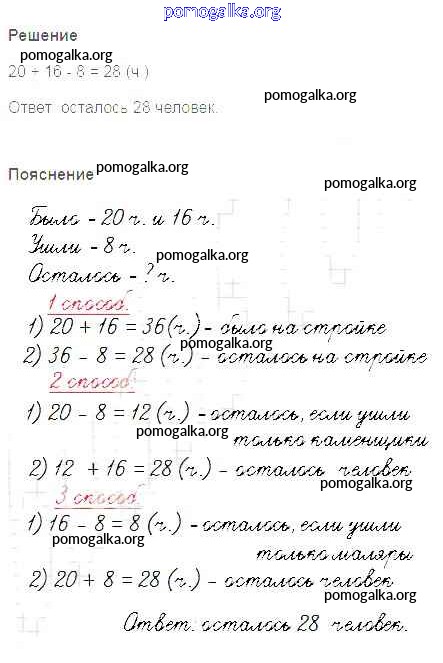 pomogalka.org
Решение
pomogalka.org
20 + 16 - 8 = 28 (ч.)
pomogalka.org
Ответ: осталось 28 человек.
Пояснение pomogalka.org
pomogalka.org
Было - 20 ч. и 16 ч.
Ушли - 8 ч.
pomogalka.org
Осталось - ? ч.
1 способ.
1) 20 + 16 = 36 (ч.) - было на стройке
pomogalka.org
2) 36 - 8 = 28 (ч.) - осталось на стройке
2 способ.
1) 20 - 8 = 12 (ч.) - осталось, если ушли
pomogalka.org
только каменщики
2) 12 + 16 = 28 (ч.) - осталось человек
pomogalka.org
3 способ
1) 16 - 8 = 8 (ч.) - осталось, если ушли
pomogalka.org
только маляры
2) 20 + 8 = 28 (ч.) - осталось человек
pomogalka.org
Ответ: осталось 28 человек.